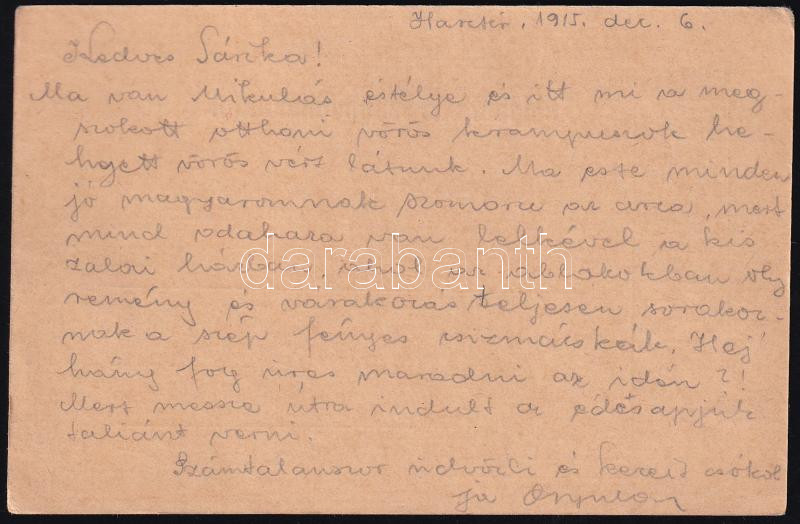 Harctér, 1915. dec. 6.
Kedves Sárika!
Ma van Mikulás estélye és itt mi a meg-
szokott otthoni vörös krampuszok he-
lyett vörös vért látunk. Ma este minden
jó magyaromnak szomorú az arca, mert
mind odahaza van lelkével a kis
zalai házban, ahol az ablakokban oly
remény és várakozás teljesen sorakoz-
nak a szép fényes csizmácskák. Hej
hány fog üres maradni az idén?!
Mert messze útra indult az édesapjuk
taliánt verni.
Számtalanszor üdvözli és kezeit csókol
ja
darabanth